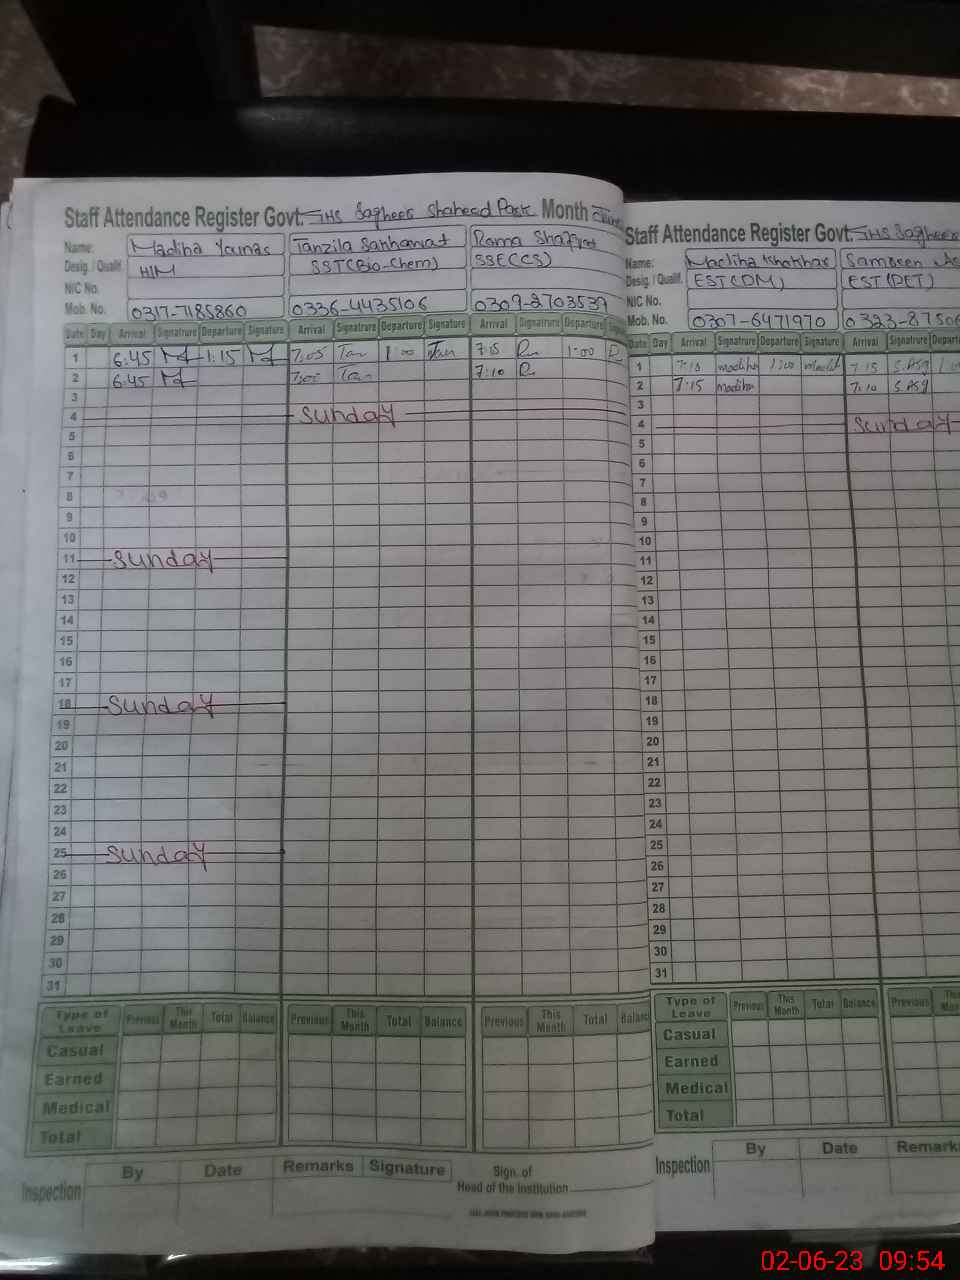 Staff Attendance Register Govt. GHS Sagheer Shaheed Park Month
Name: Madiha Younas Tanzila Sakhawat Roma Shafqat
Desig. / Qualif. HM SST(Bio-Chem) SSE(CS)
NIC No.
Mob. No. 0317-7185860 0336-4435106 0309-2703539
Date Day Arrival Signatrure Departure Signature Arrival Signatrure Departure Signature Arrival Signatrure Departure
1 6:45 M 1:15 M 7:05 Tan 1:00 Tan 7:15 R 1:00 R
2 6:45 M 7:00 Tan 7:10 R
3
4 Sunday
5
6
7
8
9
10
11 Sunday
12
13
14
15
16
17
18 Sunday
19
20
21
22
23
24
25 Sunday
26
27
28
29
30
31
Type of Leave Previous This Month Total Balance Previous This Month Total Balance Previous This Month Total Balance
Casual
Earned
Medical
Total
By Date Remarks Signature
Inspection
Sign. of
Head of the Institution
Staff Attendance Register Govt. GHS Sagheer
Name: Madiha Khokhar Samreen
Desig. / Qualif. EST(DM) EST(DET)
NIC No.
Mob. No. 0307-6471970 0323-87506
Date Day Arrival Signatrure Departure Signature Arrival Signatrure
1 7:10 madiha 1:00 7:15 S.Asg
2 7:15 madiha 7:10 S.Asg
3
4 Sunday
5
6
7
8
9
10
11
12
13
14
15
16
17
18
19
20
21
22
23
24
25
26
27
28
29
30
31
Type of Leave Previous This Month Total Balance Previous
Casual
Earned
Medical
Total
By Date Remark
Inspection
02-06-23 09:54